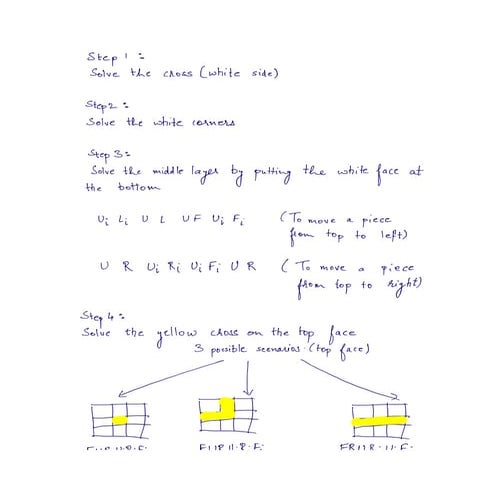 Step 1 :
Solve the cross (white side)
Step 2 :
Solve the white corners
Step 3 :
Solve the middle layer by putting the white face at
the bottom
Ui Li U L U F Ui Fi (To move a piece
from top to left)
U R Ui Ri Ui Fi U R ( To move a piece
from top to right)
Step 4 :
Solve the yellow cross on the top face
3 possible scenarios (top face)